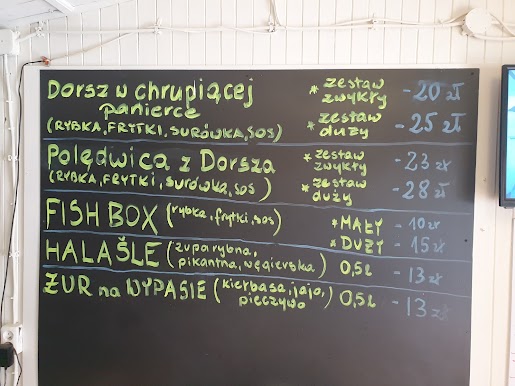 Dorsz w chrupiącej * zestaw zwykły - 20 zł
panierce
(RYBKA, FRYTKI, SURÓWKA, SOS) * zestaw duży - 25 zł
Polędwica z Dorsza * zestaw zwykły - 23 zł
(RYBKA, FRYTKI, SURÓWKA, SOS) * zestaw duży - 28 zł
FISH BOX (rybka, frytki, sos) * MAŁY - 10 zł
* DUŻY - 15 zł
HALAŠLE (zupa rybna, pikantna, węgierska) 0,5 l - 13 zł
ŻUR na WYPASIE (kiełbasa, jajo, pieczywo) 0,5 l - 13 zł